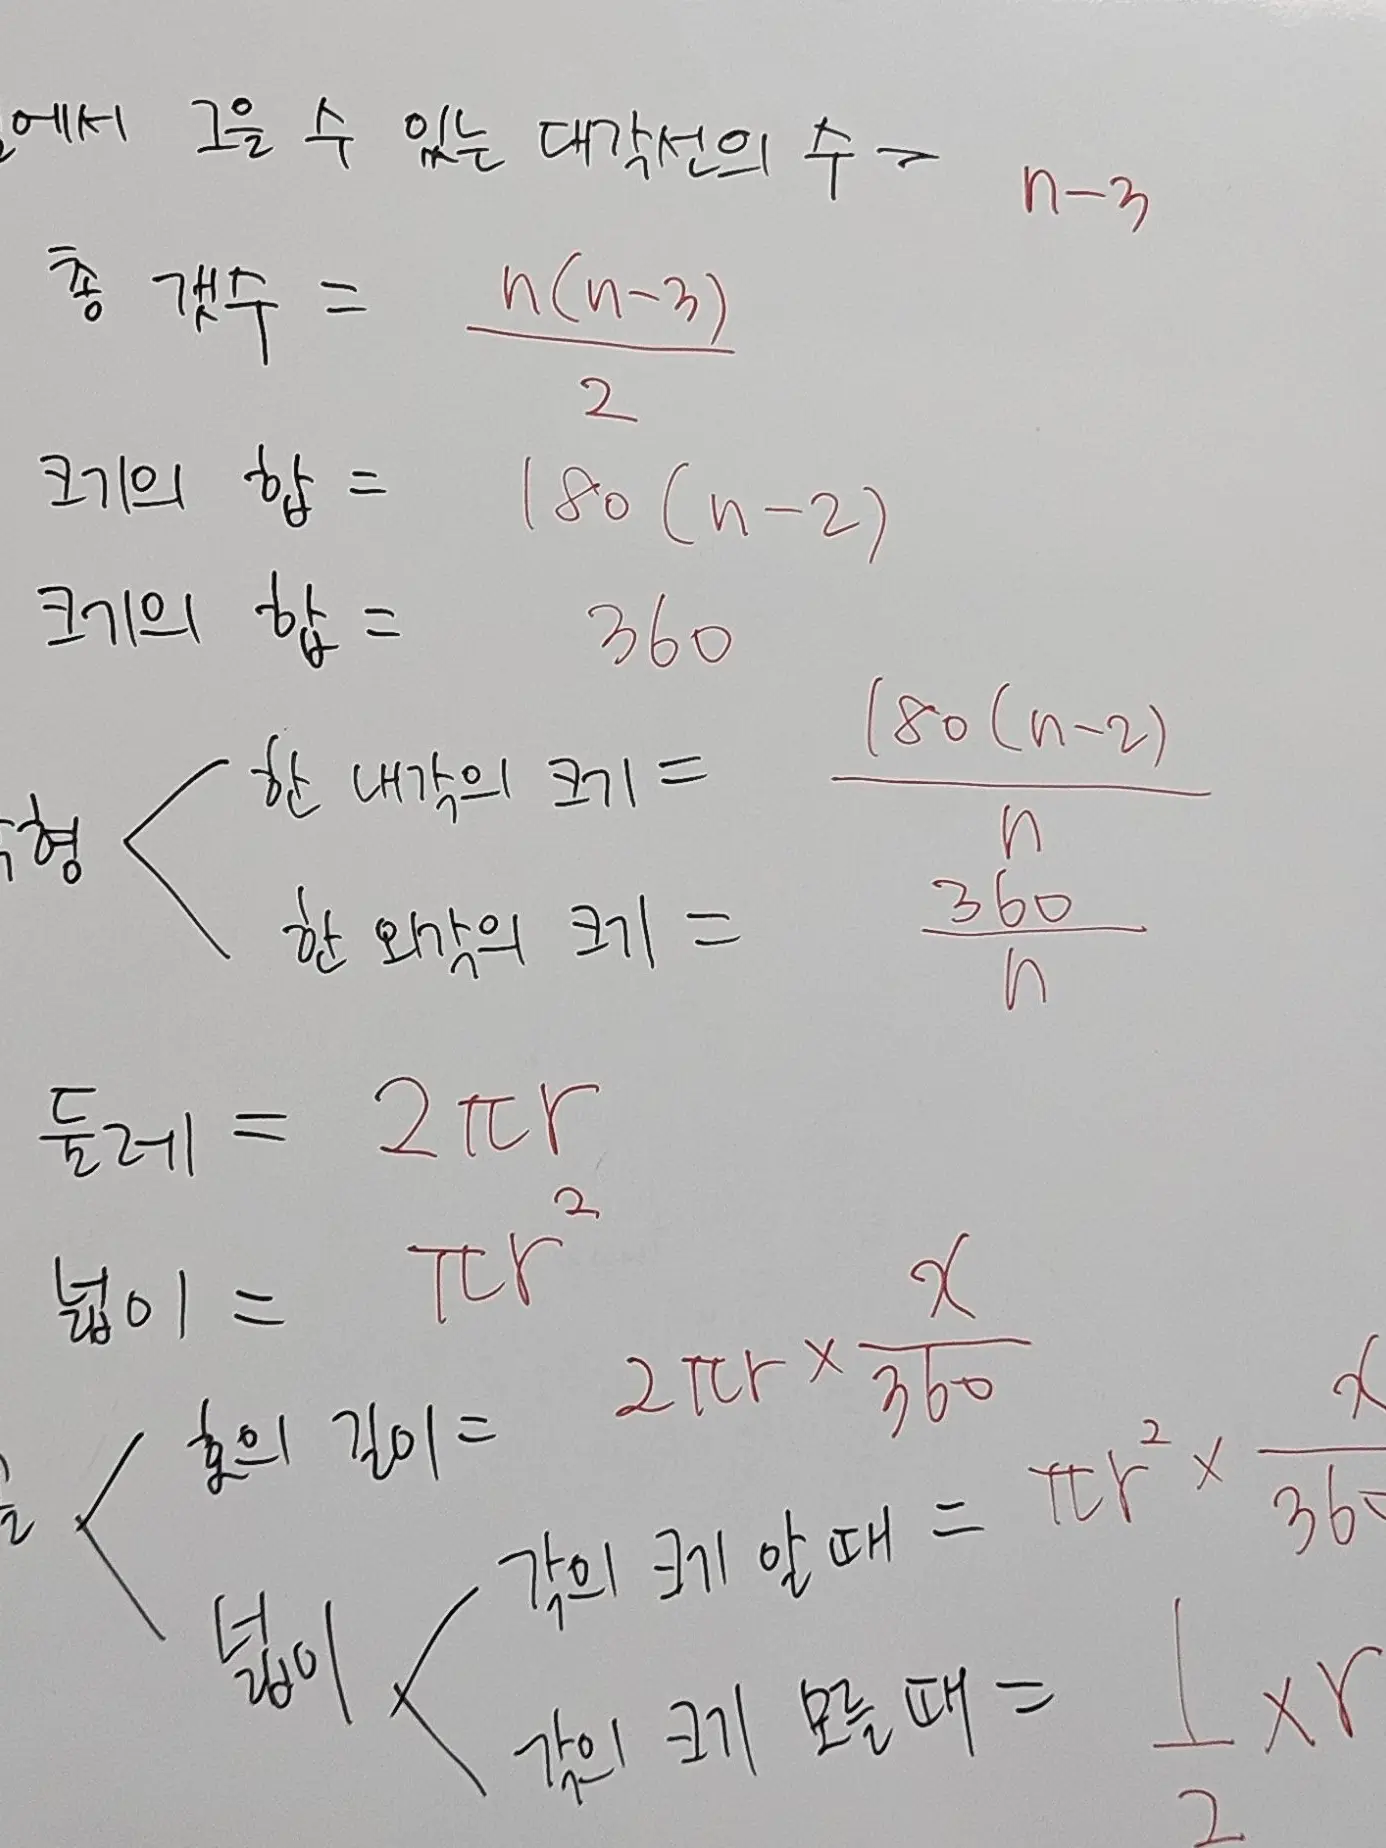 에서 그을 수 있는 대각선의 수 → n-3
총 갯수 = n(n-3)/2
크기의 합 = 180(n-2)
크기의 합 = 360
형 < 한 내각의 크기 = 180(n-2)/n
한 외각의 크기 = 360/n
둘레 = 2πr
넓이 = πr²
호의 길이 = 2πr × x/360
넓이 < 각의 크기 알 때 = πr² × x/360
각의 크기 모를 때 = 1/2 × r